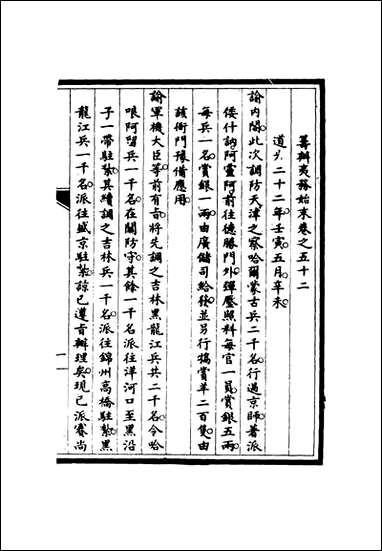 籌辦夷務始末卷之五十二
道光二十二年壬寅五月辛未
諭內閣此次調防天津之察哈爾蒙古兵二千名行過京師著派
倭什訥阿靈阿前往德勝門外彈壓照料每官一員賞銀五兩
每兵一名賞銀一兩由廣儲司給發並另行犒賞羊二百隻由
該衙門豫備應用
諭軍機大臣等前有旨將先調之吉林黑龍江兵共二千名令哈
哴阿留兵一千名在關防守其餘一千名派往洋河口至黑沿
子一帶駐紮其續調之吉林兵一千名派往錦州高橋駐紮黑
龍江兵一千名派往盛京駐紮諒已遵旨辦理矣現已派賽尚
一